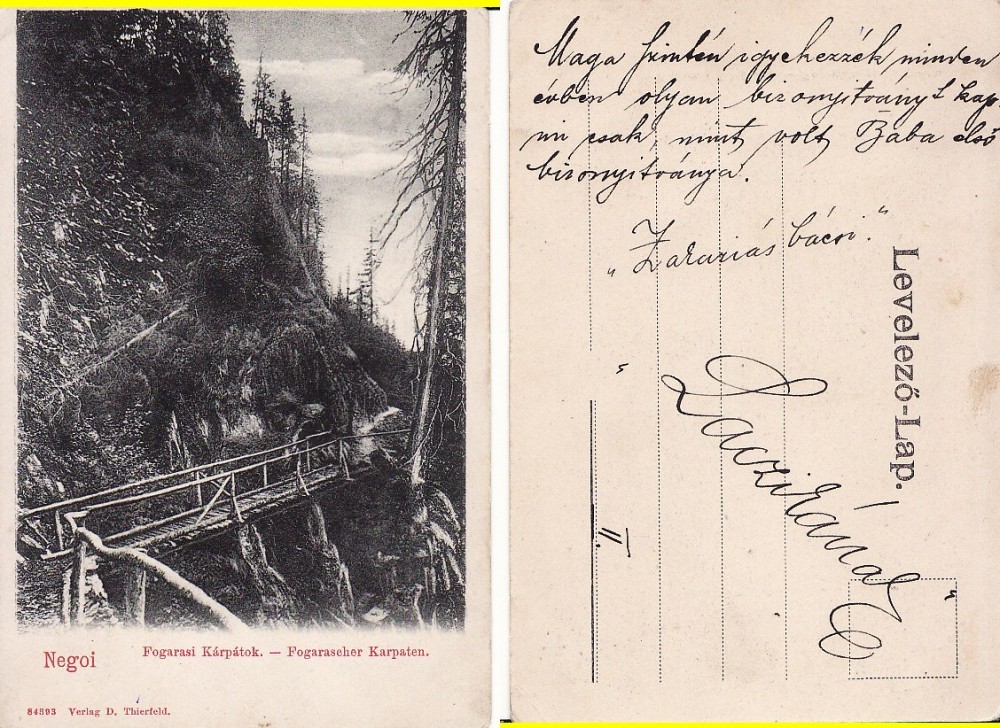 Negoi
Fogarasi Kárpátok. — Fogarascher Karpaten.
84893 Verlag D. Thierfeld.
Maga szintén igyekezzék minden
évben olyan bizonyitványt kap
ni csak, mint volt, Baba első
bizonyitványa.
„Zakariás bácsi.“
Levelező-Lap.
„
Laczikának
“
II.